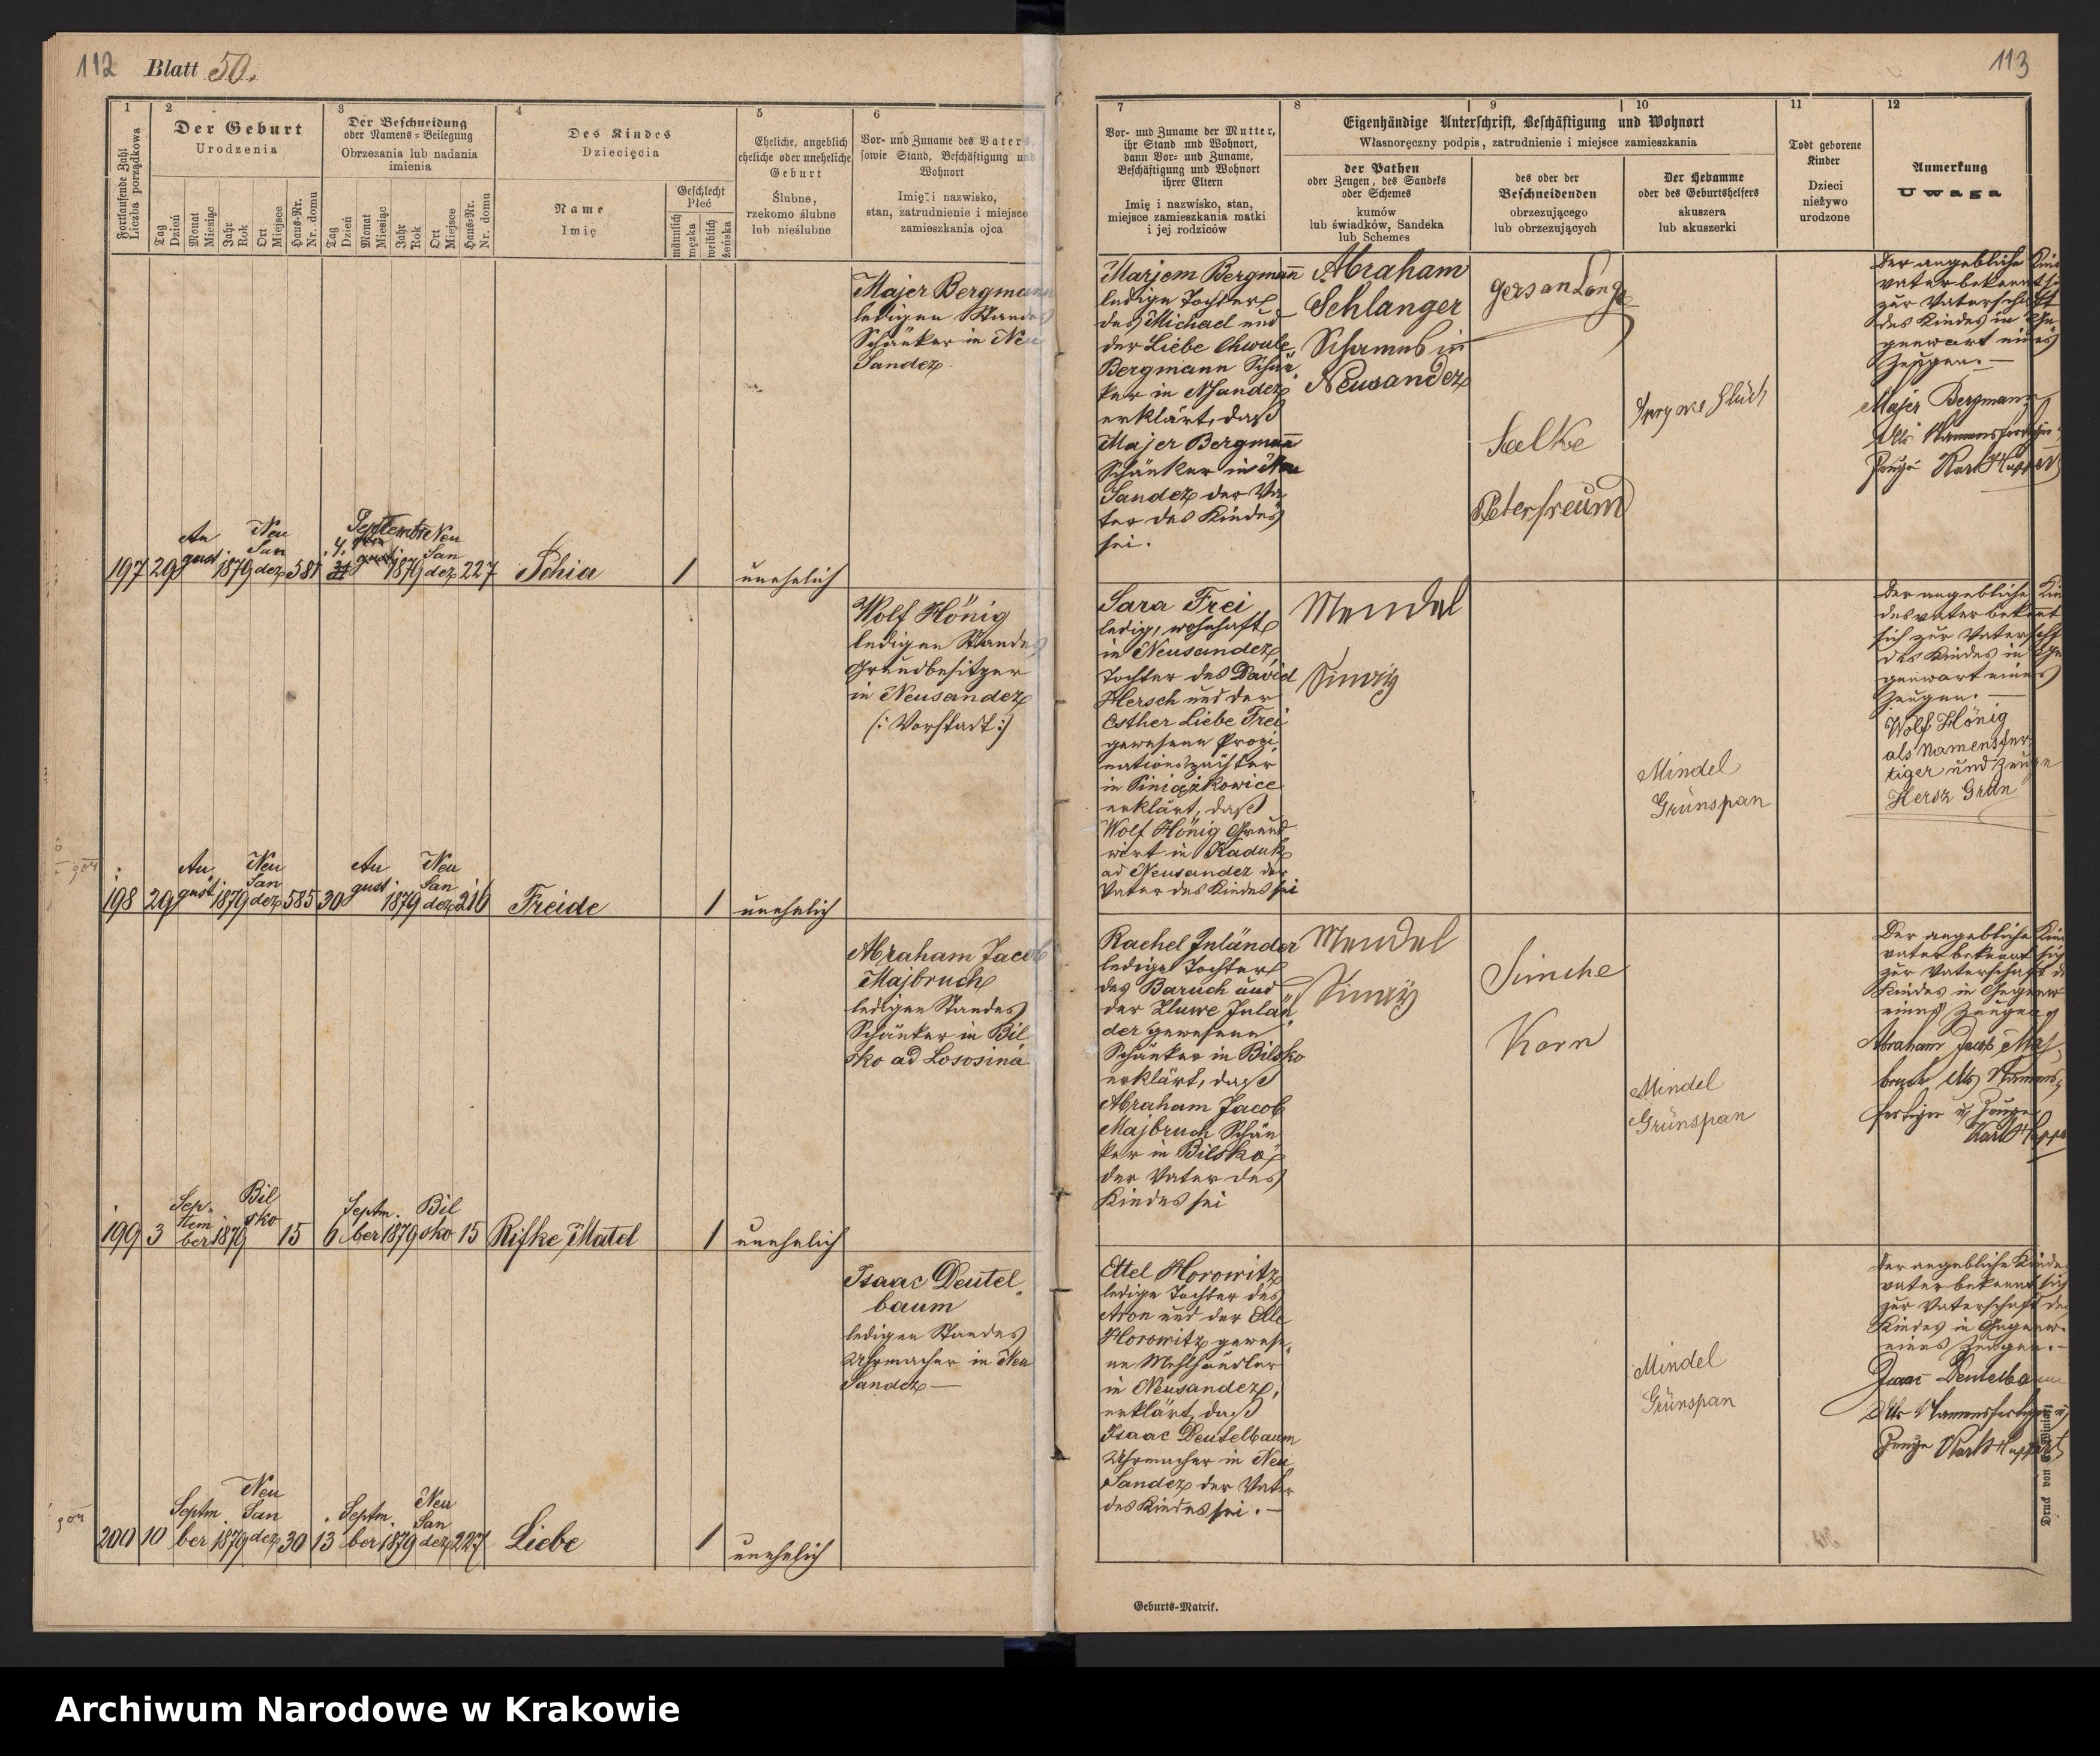 112 Blatt 50.
1
Fortlaufende Zahl
Liczba porządkowa
2
Der Geburt
Urodzenia
Tag
Dzień
Monat
Miesiąc
Jahr
Rok
Ort
Miejsce
Haus-Nr.
Nr. domu
3
Der Beschneidung
oder Namens-Beilegung
Obrzezania lub nadania
imienia
Tag
Dzień
Monat
Miesiąc
Jahr
Rok
Ort
Miejsce
Haus-Nr.
Nr. domu
4
Des Kindes
Dziecięcia
Name
Imię
Geschlecht
Płeć
männlich
męzka
weiblich
żeńska
5
Eheliche, angeblich
eheliche oder uneheliche
Geburt
Ślubne,
rzekomo ślubne
lub nieślubne
6
Vor- und Zuname des Vaters,
sowie Stand, Beschäftigung und
Wohnort
Imię i nazwisko,
stan, zatrudnienie i miejsce
zamieszkania ojca
Majer Bergmann
ledigen Standes
Schänker in Neu
Sandez
197 29 August 1879 Neu Sandez 581 4. September 1879 Neu Sandez 227 Schia 1 unehelich
Wolf Hönig
ledigen Standes
Grundbesitzer
in Neusandez
(: Vorstadt :)
198 29 August 1879 Neu Sandez 585 30 August 1879 Neu Sandez 216 Freide 1 unehelich
Abraham Jacob
Majbruch
ledigen Standes
Schänker in Bil
sko ad Lososina
199 3 September 1879 Bilsko 15 6 Septm.ber 1879 Bilsko 15 Rifke Matel 1 unehelich
Isaac Deutel
baum
ledigen Standes
Uhrmacher in Neu
Sandez —
200 10 Septm.ber 1879 Neu Sandez 30 13 Septm.ber 1879 Neu Sandez 227 Liebe 1 unehelich
113
7
Vor- und Zuname der Mutter,
ihr Stand und Wohnort,
dann Vor- und Zuname,
Beschäftigung und Wohnort
ihrer Eltern
Imię i nazwisko, stan,
miejsce zamieszkania matki
i jej rodziców
Eigenhändige Unterschrift, Beschäftigung und Wohnort
Własnoręczny podpis, zatrudnienie i miejsce zamieszkania
8
der Pathen
oder Zeugen, des Sandeks
oder Schemes
kumów
lub świadków, Sandeka
lub Schemes
9
des oder der
Beschneidenden
obrzezującego
lub obrzezujących
10
Der Hebamme
oder des Geburtshelfers
akuszera
lub akuszerki
11
Todt geborene
Kinder
Dzieci
nieżywo
urodzone
12
Anmerkung
Uwaga
Marjem Bergmann
ledige Tochter
des Michael und
der Liebe Chwule
Bergmann Schän
ker in NSandez
erklärt, daß
Majer Bergmann
Schänker in Neu
Sandez der Va
ter des Kindes
sei.
Abraham
Schlanger
Schames in
Neusandez
Gerson
Salke
Peterfreund
Der angebliche Kinds
vater bekennt sich
zur Vaterschaft
des Kindes in Ge
genwart eines
Zeugen. —
Majer Bergmann
Als Namensfertiger
Zeuge Karl
Sara Frei
ledig, wohnhaft
in Neusandez,
Tochter des David
Hersch und der
Esther Liebe Frei
gewesene Propi
nationspächter
in
erklärt, daß
Wolf Hönig Grund
wirt in Kaduk
ad Neusandez der
Vater des Kindes sei
Mendel
Mindel
Grünspan
Der angebliche Kin
desvater bekennt
sich zur Vaterschft
des Kindes in Ge
genwart eines
Zeugen. —
Wolf Hönig
als Namensfer
tiger und Zeuge
Hersz Grün
Rachel Inländer
ledige Tochter
des Baruch und
der Inlän
der gewesene
Schänker in Bilsko
erklärt, daß
Abraham Jacob
Majbruch Schän
ker in Bilsko
der Vater des
Kindes sei
Mendel
Simche
Korn
Mindel
Grünspan
Der angebliche Kinds
vater bekennt sich
zur Vaterschaft d
Kindes in Gegenw
eines Zeugen
Abraham Jacob Maj
bruch Als Namens
fertiger u. Zeuge
Karl
Ettel Horowitz
ledige Tochter des
Aron und der Elle
Horowitz gewese
ne Mehlhändler
in Neusandez,
erklärt, daß
Isaac Deutelbaum
Uhrmacher in Neu
Sandez der Vater
des Kindes sei. —
Mindel
Grünspan
Der angebliche Kinds
vater bekennt sich
zur Vaterschaft des
Kindes in Gegenw.
eines Zeugen. —
Isaac Deutelbaum
Als Namensfertiger u
Zeuge Karl
Geburts-Matrik.
Druck von
Archiwum Narodowe w Krakowie